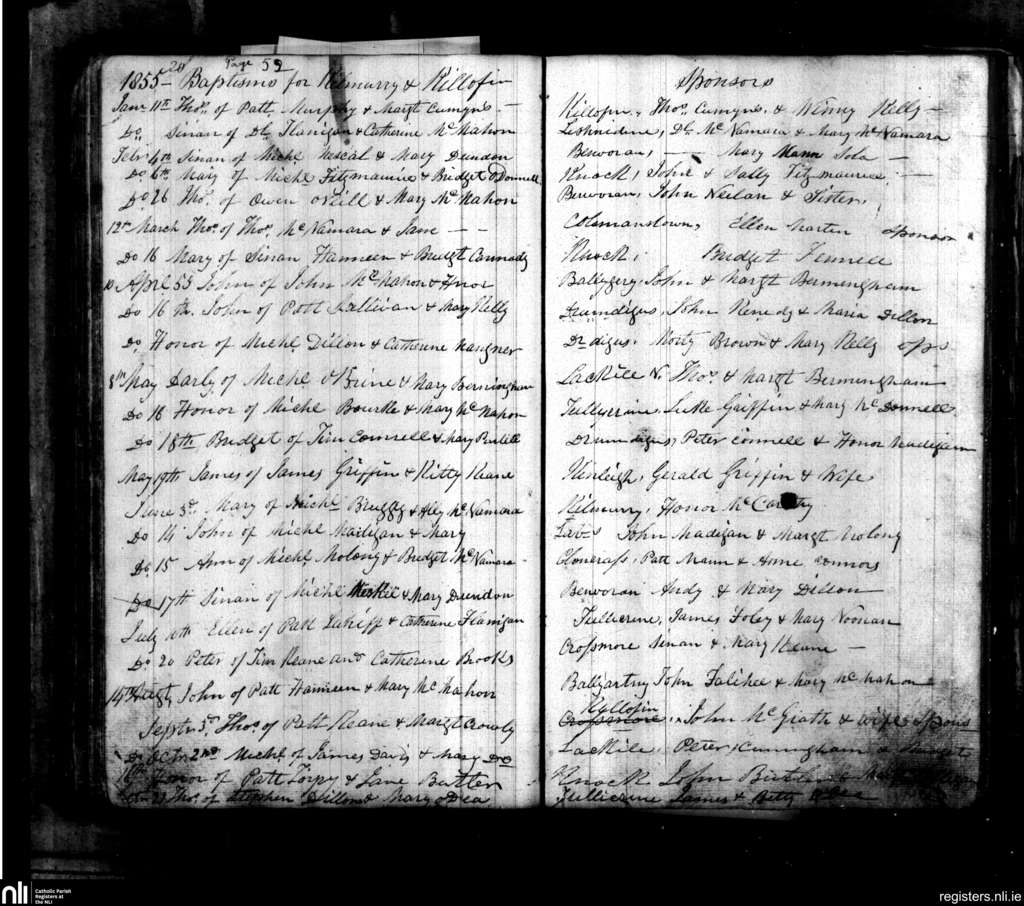 20 Page 52
1855 Baptisms for Kilmurry & Killofin
Jany 11th Thos. of Patt. Murphy & Margt Cumyns. —
Do. Sinan of Dl. Flanigan & Catherine Mc Mahon
Feby 4th Sinan of Michl. & Mary Dundon
Do 6th Mary of Michl Fitzmaurice & Bridget O'Donnell
Do 26 Thos. of Owen oNeill & Mary Mc Mahon
12th March Thos. of Thos. Mc Namara & Jane — —
Do 16 Mary of Sinan Hanneen & Bridgt
10 April 55 John of John Mc Mahon & Honor
Do 16 th. John of Patt Sullivan & Mary Kelly
Do Honor of Michl. Dillon & Catherine
8th May Darly of Michl O'Brine & Mary Bermingham
Do 16 Honor of Michl Bourke & Mary Mc Mahon
Do 18th Bridget of Tim Connell & Mary
May 19th James of James Griffin & Kitty Keane
June 3d. Mary of Michl & Mc Namara
Do 14 John of Michl Madigan & Mary
Do 15 Ann of Michl. Molony & Bridget Mc Namara
Do 17th Sinan of Michl & Mary Dundon
July 10th Ellen of Patt & Catherine Flanigan
Do 20 Peter of Tim Keane and Catherine Brooks
14th Augt John of Patt Hanneen & Mary Mc Mahon
Septr 5th Thos. of Patt Keane & Margt Crowly
Do Octr 2nd Michl. of James Davis & Mary Do
Honor of Patt Torpy & Jane Butler
Thos. of Stephen Dillon & Mary oDea
Sponsors
Killofin, Thos. Cumyns, & Winny Kelly —
Dl. Mc Namara & Mary Mc Namara
Benvoran, — Mary Mann Sola —
Knock, John & Sally Fitzmaurice —
Benvoran, John Neilan & Sister,
Colemanstown, Ellen Martin Sponsor
Knock, Bridget Fennell
John & Margt Bermingham
Drumdigus, John Kenedy & Maria Dillon
Dr digus, Morty Brown & Mary Kelly
Lackile N. Thos. & Margt Bermingham
Tullycrine, Luke Griffin & Mary Mc Donnell
Drumdigus, Peter Connell & Honor Madigan
Kinleigh, Gerald Griffin & Wife
Kilmurry, Honor Mc Carthy
John Madigan & Margt Molony
Clonerass, Patt Mann & Anne Connors
Benvoran Andy & Mary Dillon
Tullicrine, James Foley & Mary Noonan
Crossmore Sinan & Mary Keane —
John & Mary Mc Mahon
Kyllofin
Crossmore, John Mc Grath & wife Spons
Lackile, Peter Cuningham &
Knock John Butler &
Tullicrine James & Betty
nli
Catholic Parish
Registers at
the NLI
registers.nli.ie